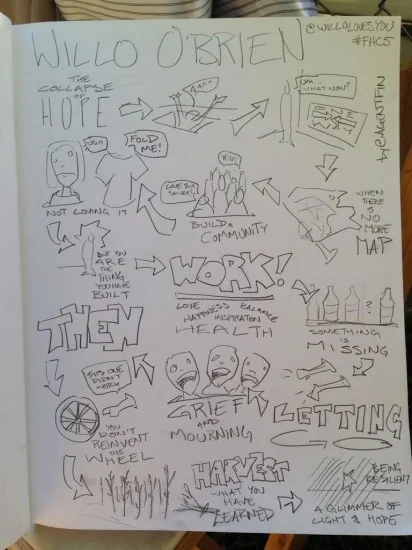 WILLO O'BRIEN
@WILLOLOVESYOU
#FHC5
by @AGENTFIN
THE
COLLAPSE
OF
HOPE
UM...
WHAT NOW?
WHEN
THERE
IS
NO
MORE
MAP
YAY!
LOVE THIS
SHIRT!
BUILD A
COMMUNITY
UGH
FOLD
ME!
NOT LOVING IT
BUT YOU
ARE
THE
THING
YOU HAVE
BUILT
WORK!
LOVE HAPPINESS BALANCE
INSPIRATION
HEALTH
?
SOMETHING
IS
MISSING
LETTING
GRIEF
AND
MOURNING
THEN
THIS ONE
DIDN'T
WORK
YOU
DON'T
REINVENT
THE
WHEEL
HARVEST
WHAT YOU
HAVE
LEARNED
BEING
RESILIENT
A GLIMMER OF
LIGHT & HOPE